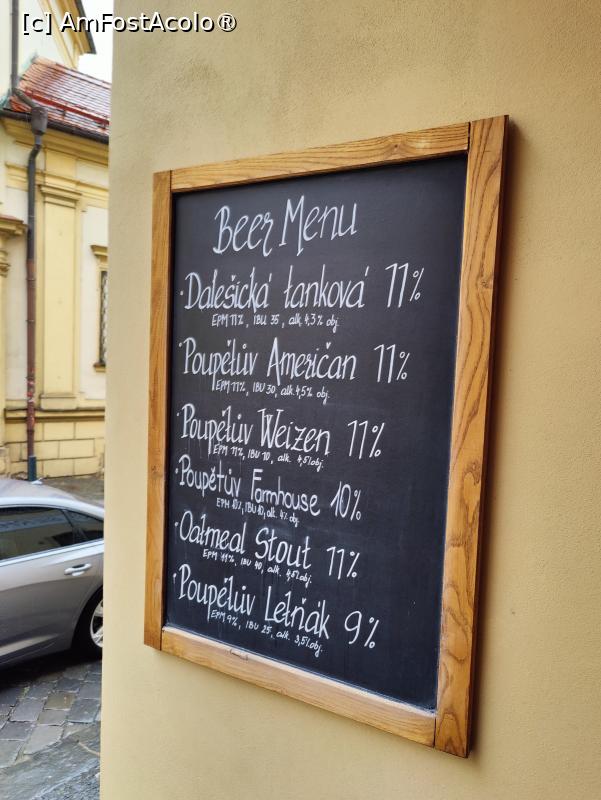 [c] AmFostAcolo®
Beer Menu
Dalešická tanková 11%
EPM 11%, IBU 35, alk. 4,3% obj.
Poupětův Američan 11%
EPM 11%, IBU 30, alk. 4,5% obj.
Poupětův Weizen 11%
EPM 11%, IBU 10, alk. 4,5% obj.
Poupětův Farmhouse 10%
EPM 10%, IBU 10, alk. 4% obj.
Oatmeal Stout 11%
EPM 11%, IBU 40, alk. 4,5% obj.
Poupětův Letňák 9%
EPM 9%, IBU 25, alk. 3,5% obj.